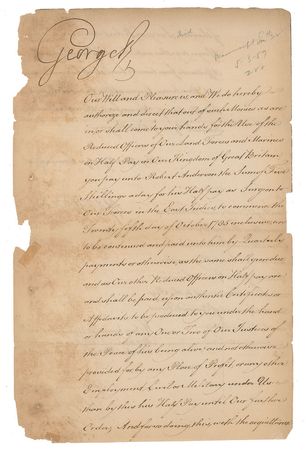 George R
Our Will and Pleasure is, and We do hereby
authorize and direct that out of such Monies as are
in or shall come to your hands for the Use of the
Reduced Officers of Our Land Forces and Marines
on Half Pay in Our Kingdom of Great Britain
you pay unto Robert Anderson the Sum of Five
Shillings a day for his Half Pay as Surgeon to
Our Forces in the East Indies, to commence the
Twenty fifth day of October 1785 inclusive, and
to be continued and paid unto him by Quarterly
payments or otherwise, as the same shall grow due
and as Our other Reduced Officers on Half pay are
and shall be paid, upon authentic Certificates or
Affidavits to be produced to you under the hand
or hands of any One or Two of Our Justices of
the Peace of his being alive, and not otherwise
provided for by any Place of Profit, or any other
Employment Civil or Military under Us
than by this his Half Pay until Our further
Order, And for so doing this, with the acquittance